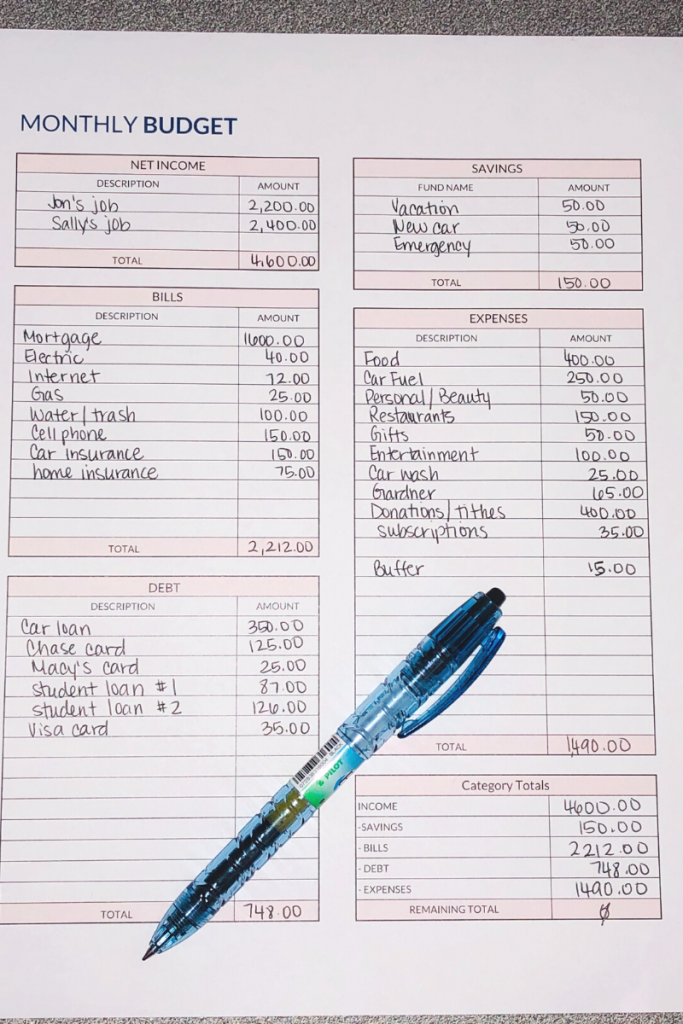 MONTHLY BUDGET
NET INCOME
DESCRIPTION AMOUNT
Jon's job 2,200.00
Sally's job 2,400.00
TOTAL 4,600.00
BILLS
DESCRIPTION AMOUNT
Mortgage 1600.00
Electric 40.00
Internet 72.00
Gas 25.00
Water/trash 100.00
Cell phone 150.00
Car insurance 150.00
home insurance 75.00
TOTAL 2,212.00
DEBT
DESCRIPTION AMOUNT
Car loan 350.00
Chase card 125.00
Macy's card 25.00
student loan #1 87.00
student loan #2 126.00
Visa card 35.00
TOTAL 748.00
SAVINGS
FUND NAME AMOUNT
Vacation 50.00
New car 50.00
Emergency 50.00
TOTAL 150.00
EXPENSES
DESCRIPTION AMOUNT
Food 400.00
Car Fuel 250.00
Personal/Beauty 50.00
Restaurants 150.00
Gifts 50.00
Entertainment 100.00
Car wash 25.00
Gardner 65.00
Donations/tithes 400.00
subscriptions 35.00
Buffer 15.00
TOTAL 1,490.00
Category Totals
INCOME 4600.00
-SAVINGS 150.00
- BILLS 2212.00
- DEBT 748.00
- EXPENSES 1490.00
REMAINING TOTAL 0
PILOT